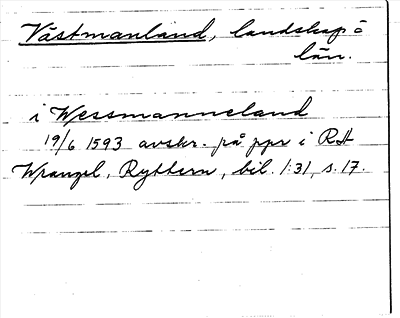 Västmanland, landskap o
län.
i Wessmanneland
19/6 1593 avskr. på ppr i RA
Wrangel, Ryttern, bil. 1:31, s. 17.